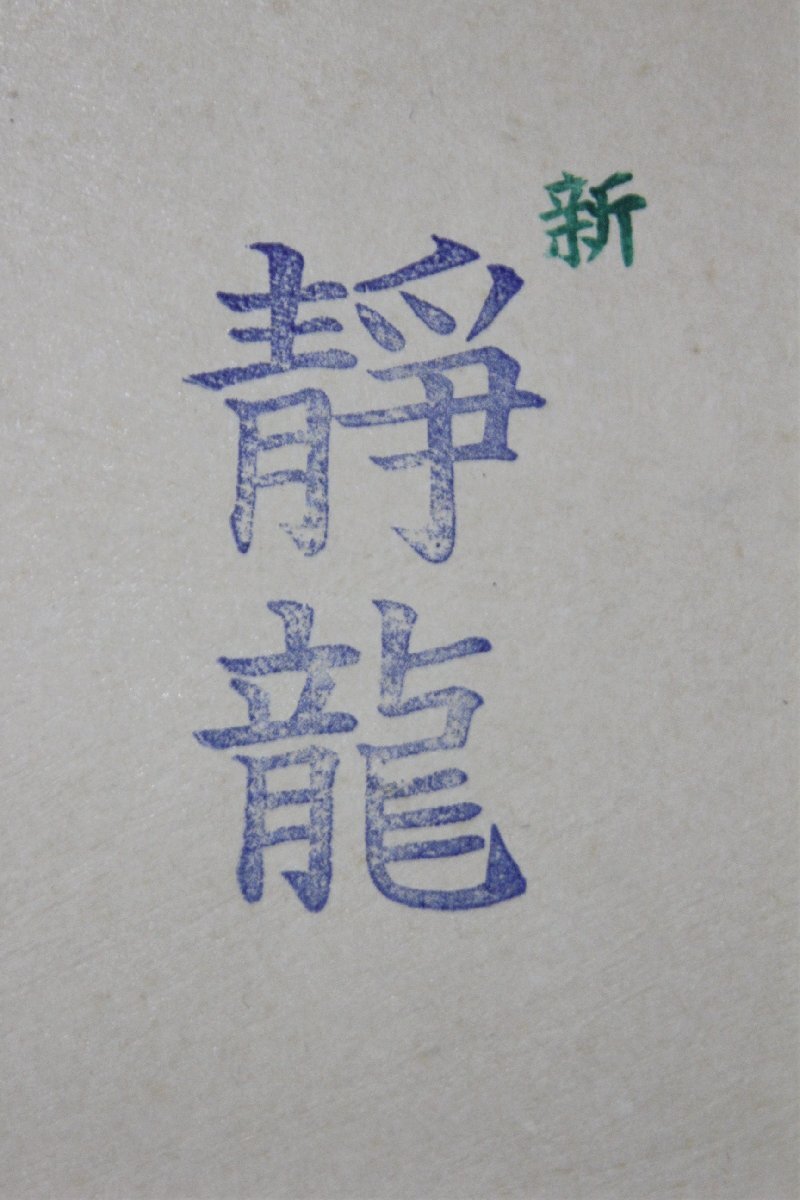 新
靜龍